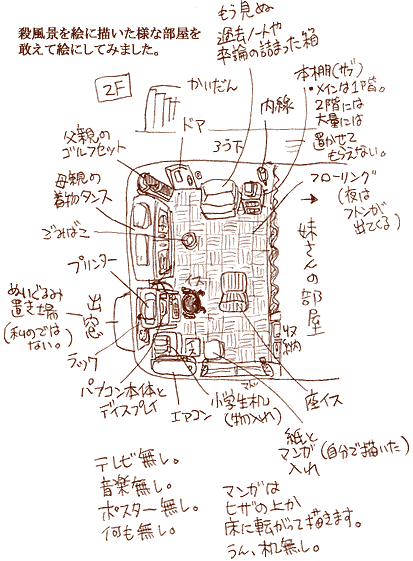 殺風景を絵に描いた様な部屋を
敢えて絵にしてみました。
2F
かいだん
もう見ぬ
過去ノートや
卒論の詰まった箱
本棚(サブ)
・メインは1階。
2階には
大量には
置かせて
もらえない。
内線
ドア
ろう下
父親の
ゴルフセット
母親の
着物タンス
ごみばこ
フローリング
(夜は
フトンが
出てくる)
→
妹さんの部屋
プリンター
ぬいぐるみ
置き場
(私のでは
ない。)
出窓
イス
ラック
パソコン本体と
ディスプレイ
エアコン
小学生机
(物入れ)
収納
座イス
紙と
マンガ(自分で描いた)
入れ
テレビ無し。
音楽無し。
ポスター無し。
何も無し。
マンガは
ヒザの上か
床に転がって描えます。
うん、机無し。